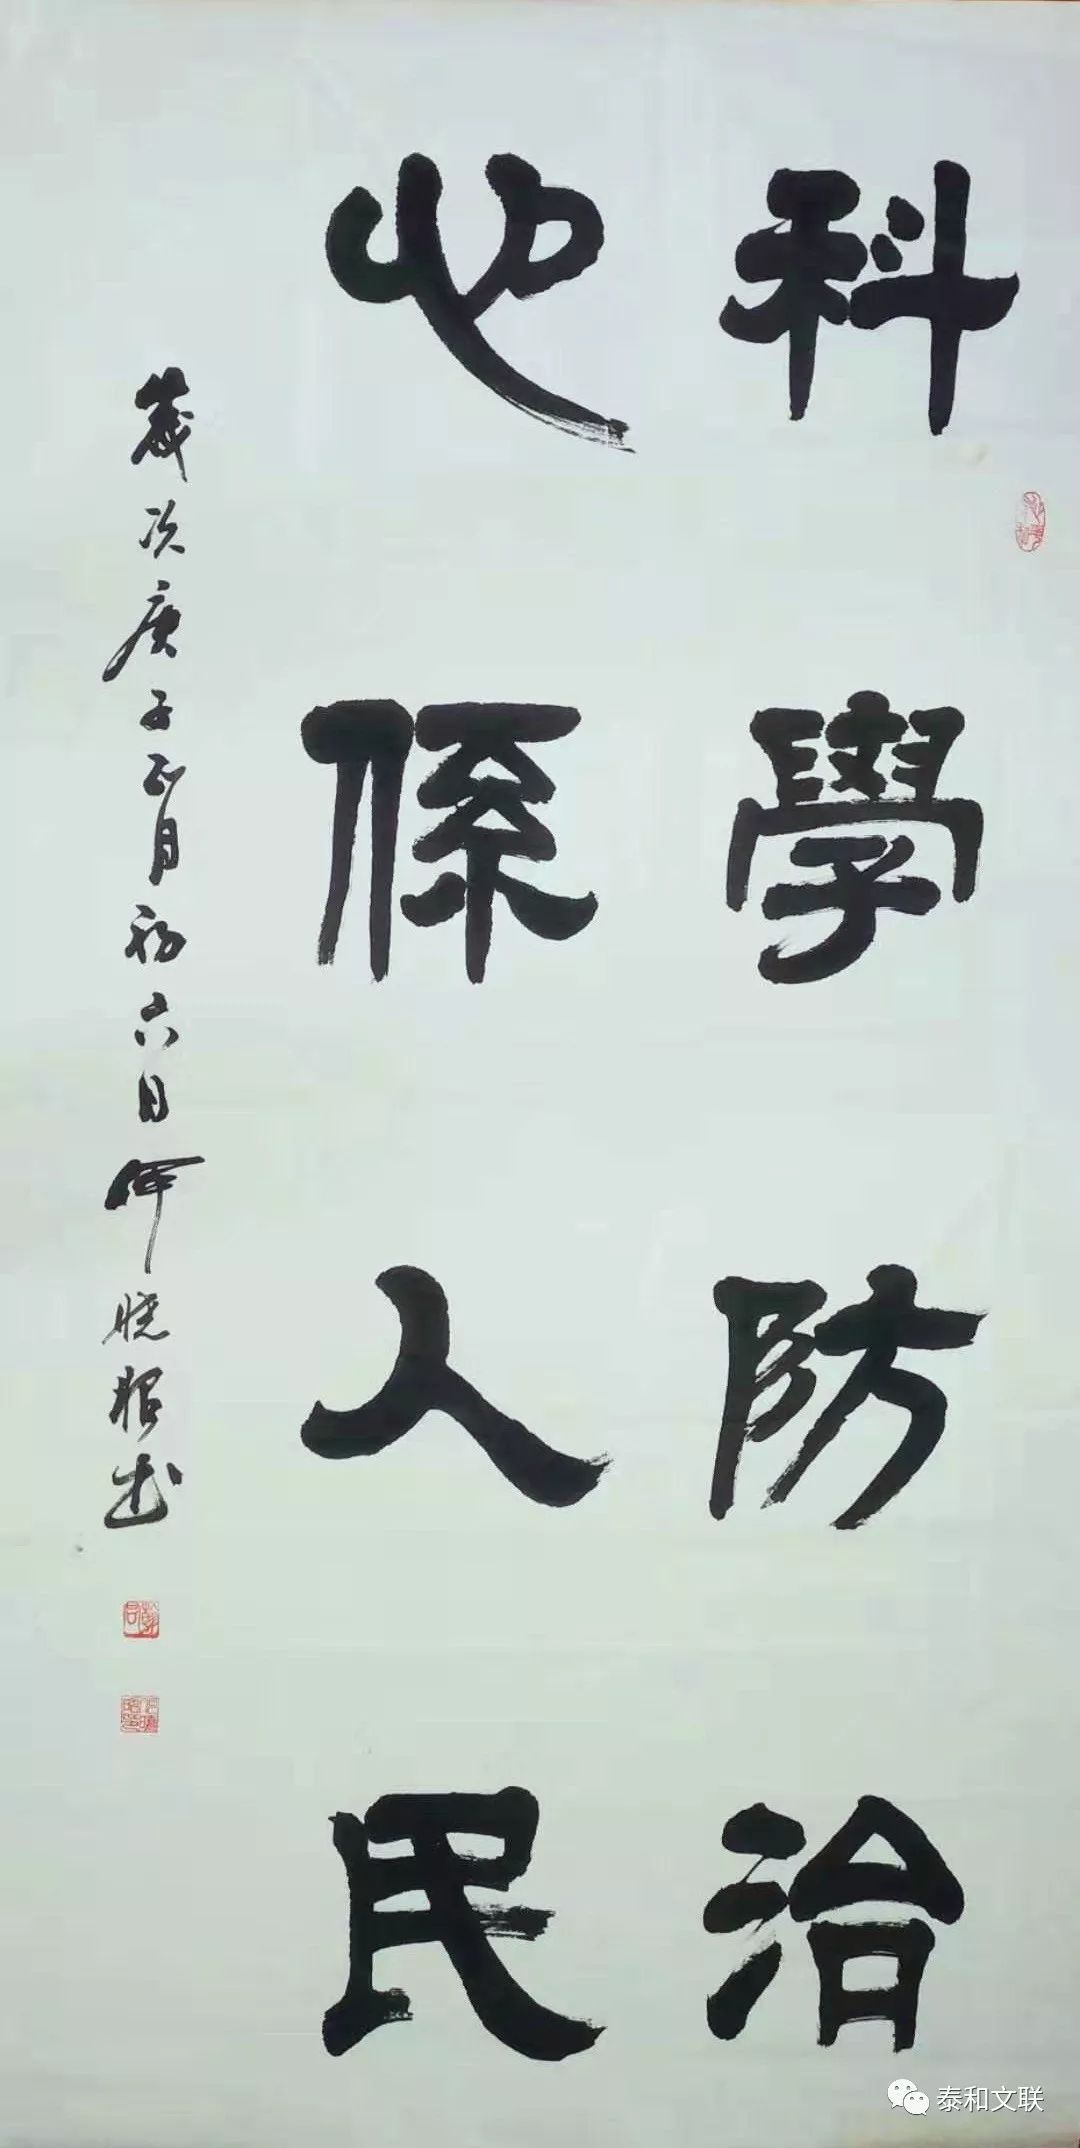 科學防治
心係人民
歲次庚子正月初六日何曉昭書
泰和文联